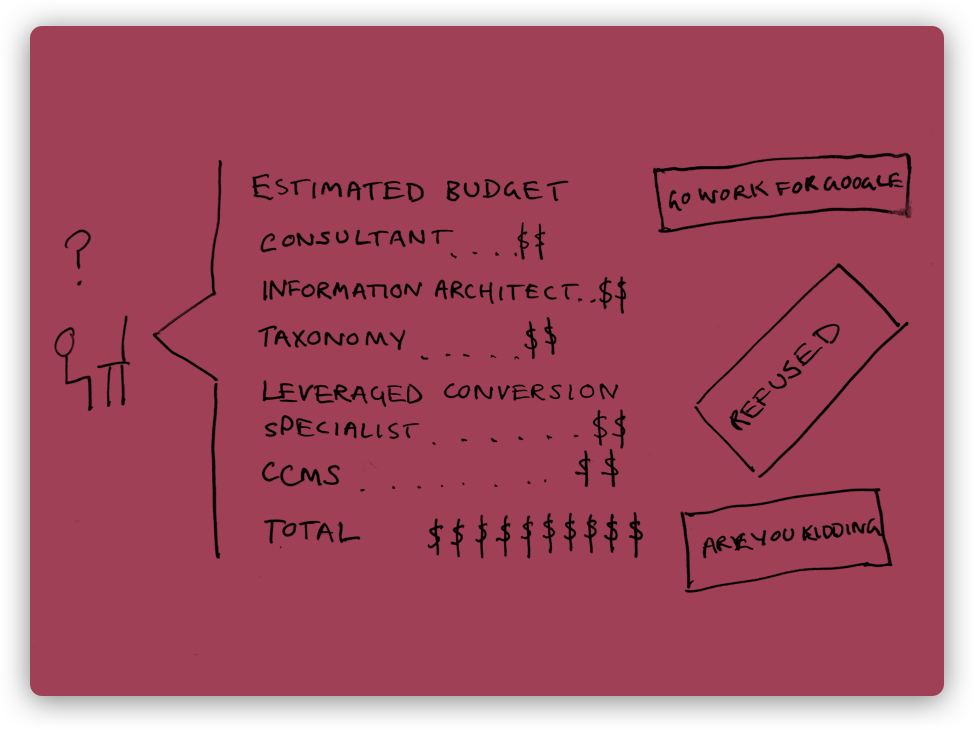 ?
ESTIMATED BUDGET
CONSULTANT....$$
INFORMATION ARCHITECT..$$
TAXONOMY.....$$
LEVERAGED CONVERSION
SPECIALIST......$$
CCMS.......$$
TOTAL $$$$$$$$$$
GO WORK FOR GOOGLE
REFUSED
ARE YOU KIDDING